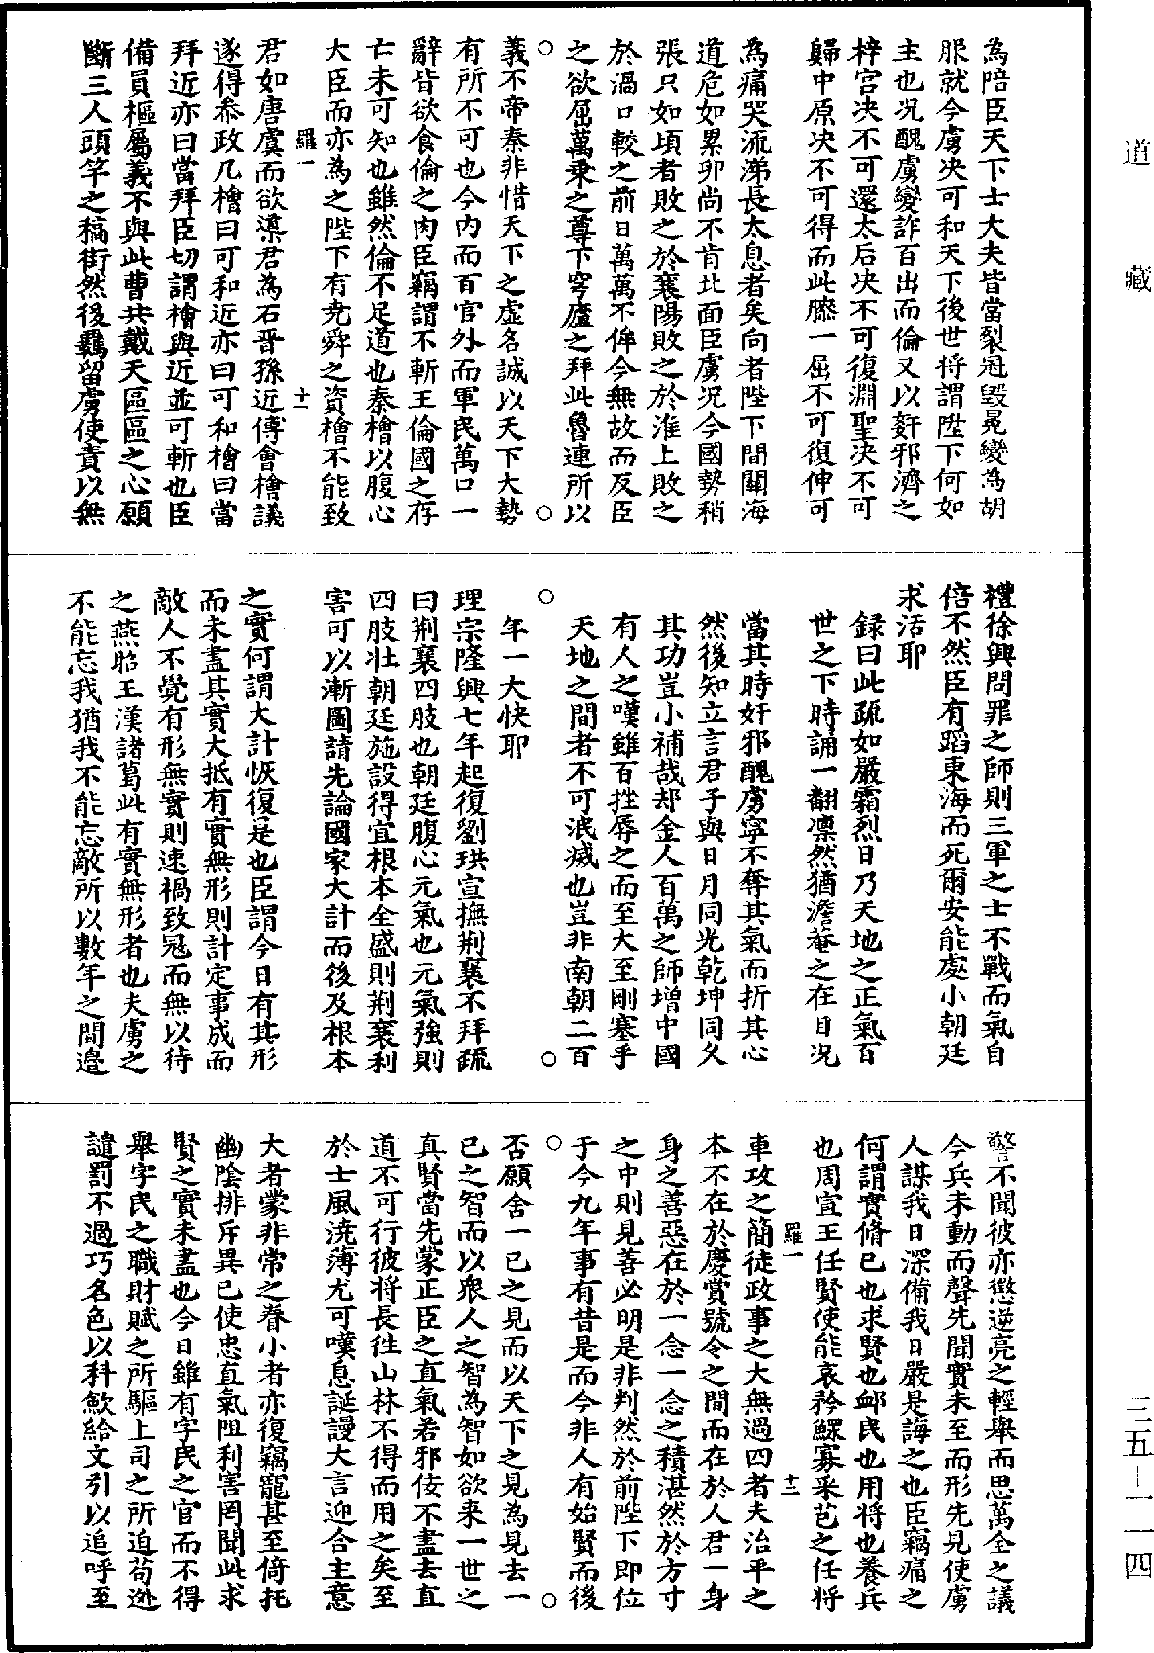 道藏
三五-一一四
為陪臣天下士大夫皆當裂冠毀冕變為胡
服就令虜決可和天下後世將謂陛下何如
主也況醜虜變詐百出而倫又以姧邪濟之
梓宮決不可還太后決不可復淵聖決不可
歸中原決不可得而此膝一屈不可復伸可
為痛哭流涕長太息者矣向者陛下間關海
道危如累卵尚不肯北面臣虜況今國勢稍
張只如頃者敗之於襄陽敗之於淮上敗之
於渦口較之前日萬萬不侔今無故而反臣
之欲屈萬乗之尊下穹廬之拜此魯連所以
義不帝秦非惜天下之虛名誠以天下大勢
有所不可也今內而百官外而軍民萬口一
辭皆欲食倫之肉臣竊謂不斬王倫國之存
亡未可知也雖然倫不足道也秦檜以腹心
大臣而亦為之陛下有堯舜之資檜不能致
羅一
十一
君如唐虞而欲導君為石晉孫近傅會檜議
遂得叅政凡檜曰可和近亦曰可和檜曰當
拜近亦曰當拜臣切謂檜與近並可斬也臣
備員樞屬義不與此曹共戴天區區之心願
斷三人頭竿之稿街然後羈留虜使責以無
禮徐興問罪之師則三軍之士不戰而氣自
倍不然臣有蹈東海而死爾安能處小朝廷
求活耶
録曰此疏如嚴霜烈日乃天地之正氣百
世之下時誦一翻凛然猶澹菴之在目況
當其時奸邪醜虜寧不奪其氣而折其心
然後知立言君子與日月同光乾坤同久
其功豈小補哉却金人百萬之師增中國
有人之嘆雖百挫辱之而至大至剛塞乎
天地之間者不可泯滅也豈非南朝二百
年一大快耶
理宗隆興七年起復劉珙宣撫荆襄不拜疏
曰荆襄四肢也朝廷腹心元氣也元氣強則
四肢壯朝廷施設得宜根本全盛則荆襄利
害可以漸圖請先論國家大計而後及根本
之實何謂大計恢復是也臣謂今日有其形
而未盡其實大抵有實無形則計定事成而
敵人不覺有形無實則速禍致冦而無以待
之燕昭王漢諸葛此有實無形者也夫虜之
不能忘我猶我不能忘敵所以數年之間邉
警不聞彼亦懲逆亮之輕舉而思萬全之議
今兵未動而聲先聞實未至而形先見使虜
人謀我日深備我日嚴是誨之也臣竊痛之
何謂實脩已也求賢也邮民也用將也養兵
也周宣王任賢使能哀矜鰥寡采芑之任將
羅一
十二
車攻之簡徒政事之大無過四者夫治平之
本不在於慶賞號令之間而在於人君一身
身之善惡在於一念一念之積湛然於方寸
之中則見善必明是非判然於前陛下即位
于今九年事有昔是而今非人有始賢而後
否願舍一已之見而以天下之見為見去一
已之智而以衆人之智為智如欲来一世之
真賢當先蒙正臣之直氣若邪佞不盡去直
道不可行彼將長徃山林不得而用之矣至
於士風澆薄尤可嘆息誕謾大言迎合主意
大者蒙非常之眷小者亦復竊寵甚至倚托
幽陰排斥異已使忠直氣阻利害罔聞此求
賢之實未盡也今日雖有字民之官而不得
舉字民之職財賦之所驅上司之所迫苟逃
譴罰不過巧名色以科歛給文引以追呼至